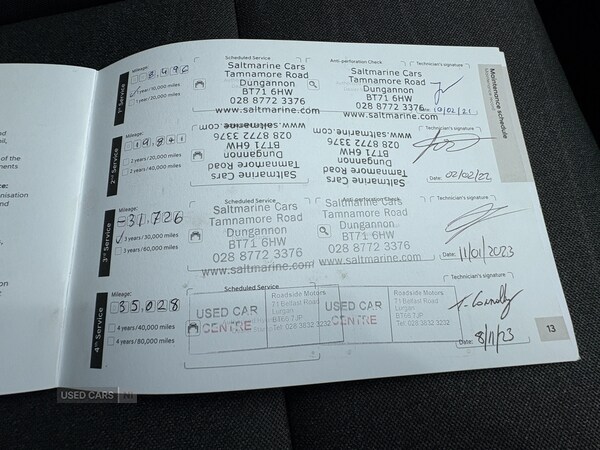 Maintenance schedule
1st Service
Mileage:
8,496
1 year/10,000 miles
1 year/20,000 miles
Scheduled Service
Saltmarine Cars
Tamnamore Road
Dungannon
BT71 6HW
028 8772 3376
www.saltmarine.com
Anti-perforation Check
Saltmarine Cars
Tamnamore Road
Dungannon
BT71 6HW
028 8772 3376
www.saltmarine.com
Technician's signature
Date: 10/02/21
2nd Service
Mileage:
19,841
2 years/20,000 miles
2 years/40,000 miles
Saltmarine Cars
Tamnamore Road
Dungannon
BT71 6HW
028 8772 3376
www.saltmarine.com
Saltmarine Cars
Tamnamore Road
Dungannon
BT71 6HW
028 8772 3376
www.saltmarine.com
Technician's signature
Date: 02/02/22
3rd Service
Mileage:
31,726
3 years/30,000 miles
3 years/60,000 miles
Scheduled Service
Saltmarine Cars
Tamnamore Road
Dungannon
BT71 6HW
028 8772 3376
www.saltmarine.com
Anti-perforation Check
Saltmarine Cars
Tamnamore Road
Dungannon
BT71 6HW
028 8772 3376
www.saltmarine.com
Technician's signature
Date: 11/01/2023
4th Service
Mileage:
35,028
4 years/40,000 miles
4 years/80,000 miles
Scheduled Service
USED CAR
CENTRE
Roadside Motors
71 Belfast Road
Lurgan
BT66 7JP
Tel: 028 3832 3232
USED CAR
CENTRE
Roadside Motors
71 Belfast Road
Lurgan
BT66 7JP
Tel: 028 3832 3232
Technician's signature
T. Connolly
Date: 8/11/23
13
USED CARS NI